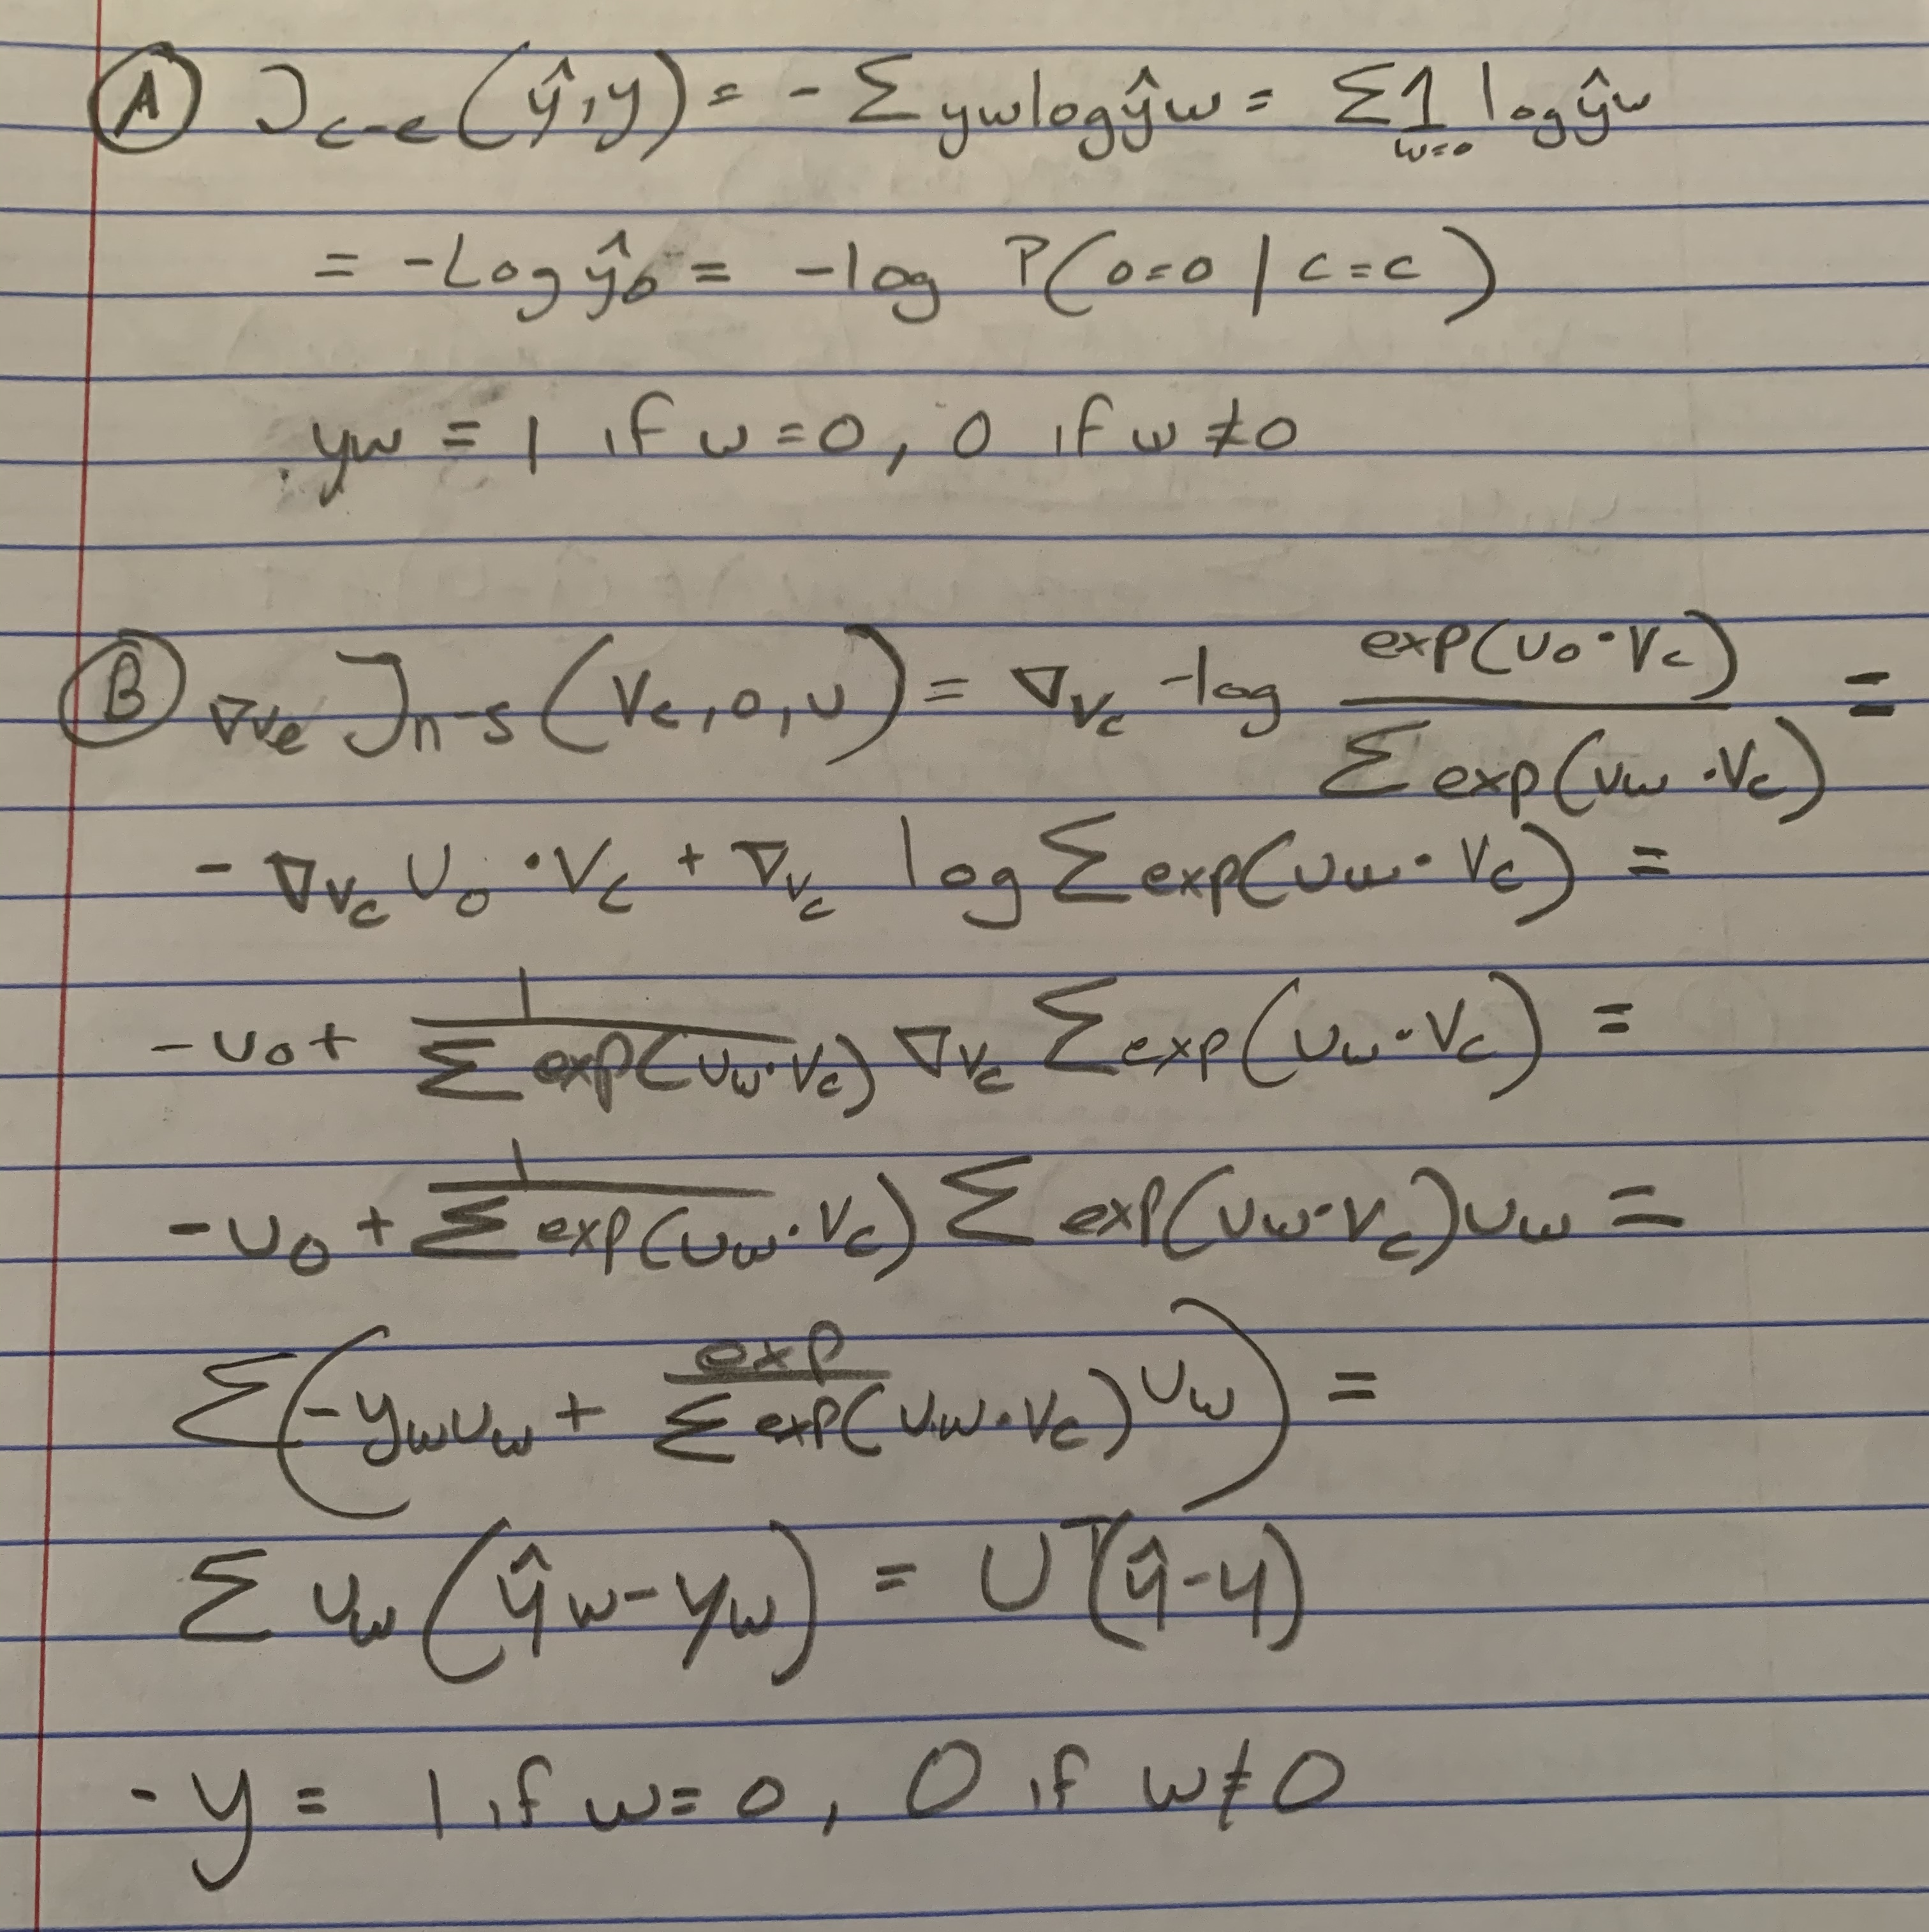 Ⓐ J_{c-e}(ŷ, y) = - Σ yw log ŷw = Σ 1_{w=0} log ŷw
= -Log ŷ_o = -log P(o=o | c=c)
yw = 1 if w=0, 0 if w≠0
Ⓑ ∇v_c J_{n-s}(V_c, o, u) = ∇_{V_c} -log exp(u_o·V_c) / Σ exp(u_w·V_c) =
- ∇_{V_c} U_o·V_c + ∇_{V_c} log Σ exp(u_w·V_c) =
-u_o + 1 / Σ exp(u_w·V_c) ∇_{V_c} Σ exp(u_w·V_c) =
-u_o + 1 / Σ exp(u_w·V_c) Σ exp(u_w·V_c) u_w =
Σ(-y_w u_w + exp / Σ exp(u_w·V_c) u_w) =
Σ u_w (ŷ_w - y_w) = U^T(ŷ-y)
- y = 1 if w=0, 0 if w≠0